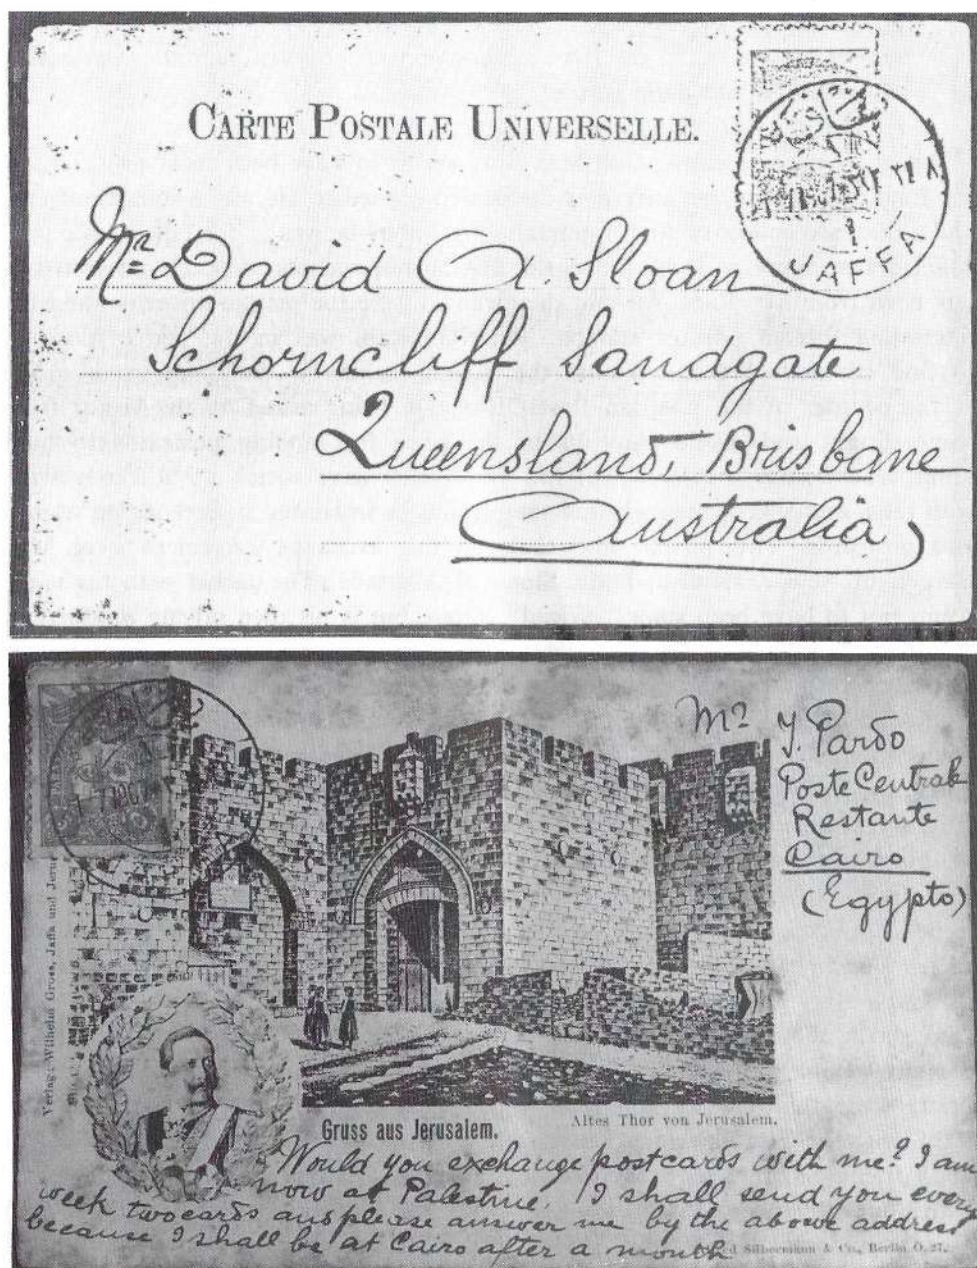 CARTE POSTALE UNIVERSELLE.
JAFFA
Mr David A. Sloan
Schorncliff Sandgate
Queensland, Brisbane
Australia
Mr J. Pardo
Poste Centrale
Restante
Cairo
(Egypto)
Verlag: Wilhelm Gross, Jaffa und
Altes Thor von Jerusalem.
Gruss aus Jerusalem.
Would you exchange postcards with me? I am
now at Palestine. I shall send you every
week two cards and please answer me by the above address
because I shall be at Cairo after a month
Silbermann & Co., Berlin O. 27.